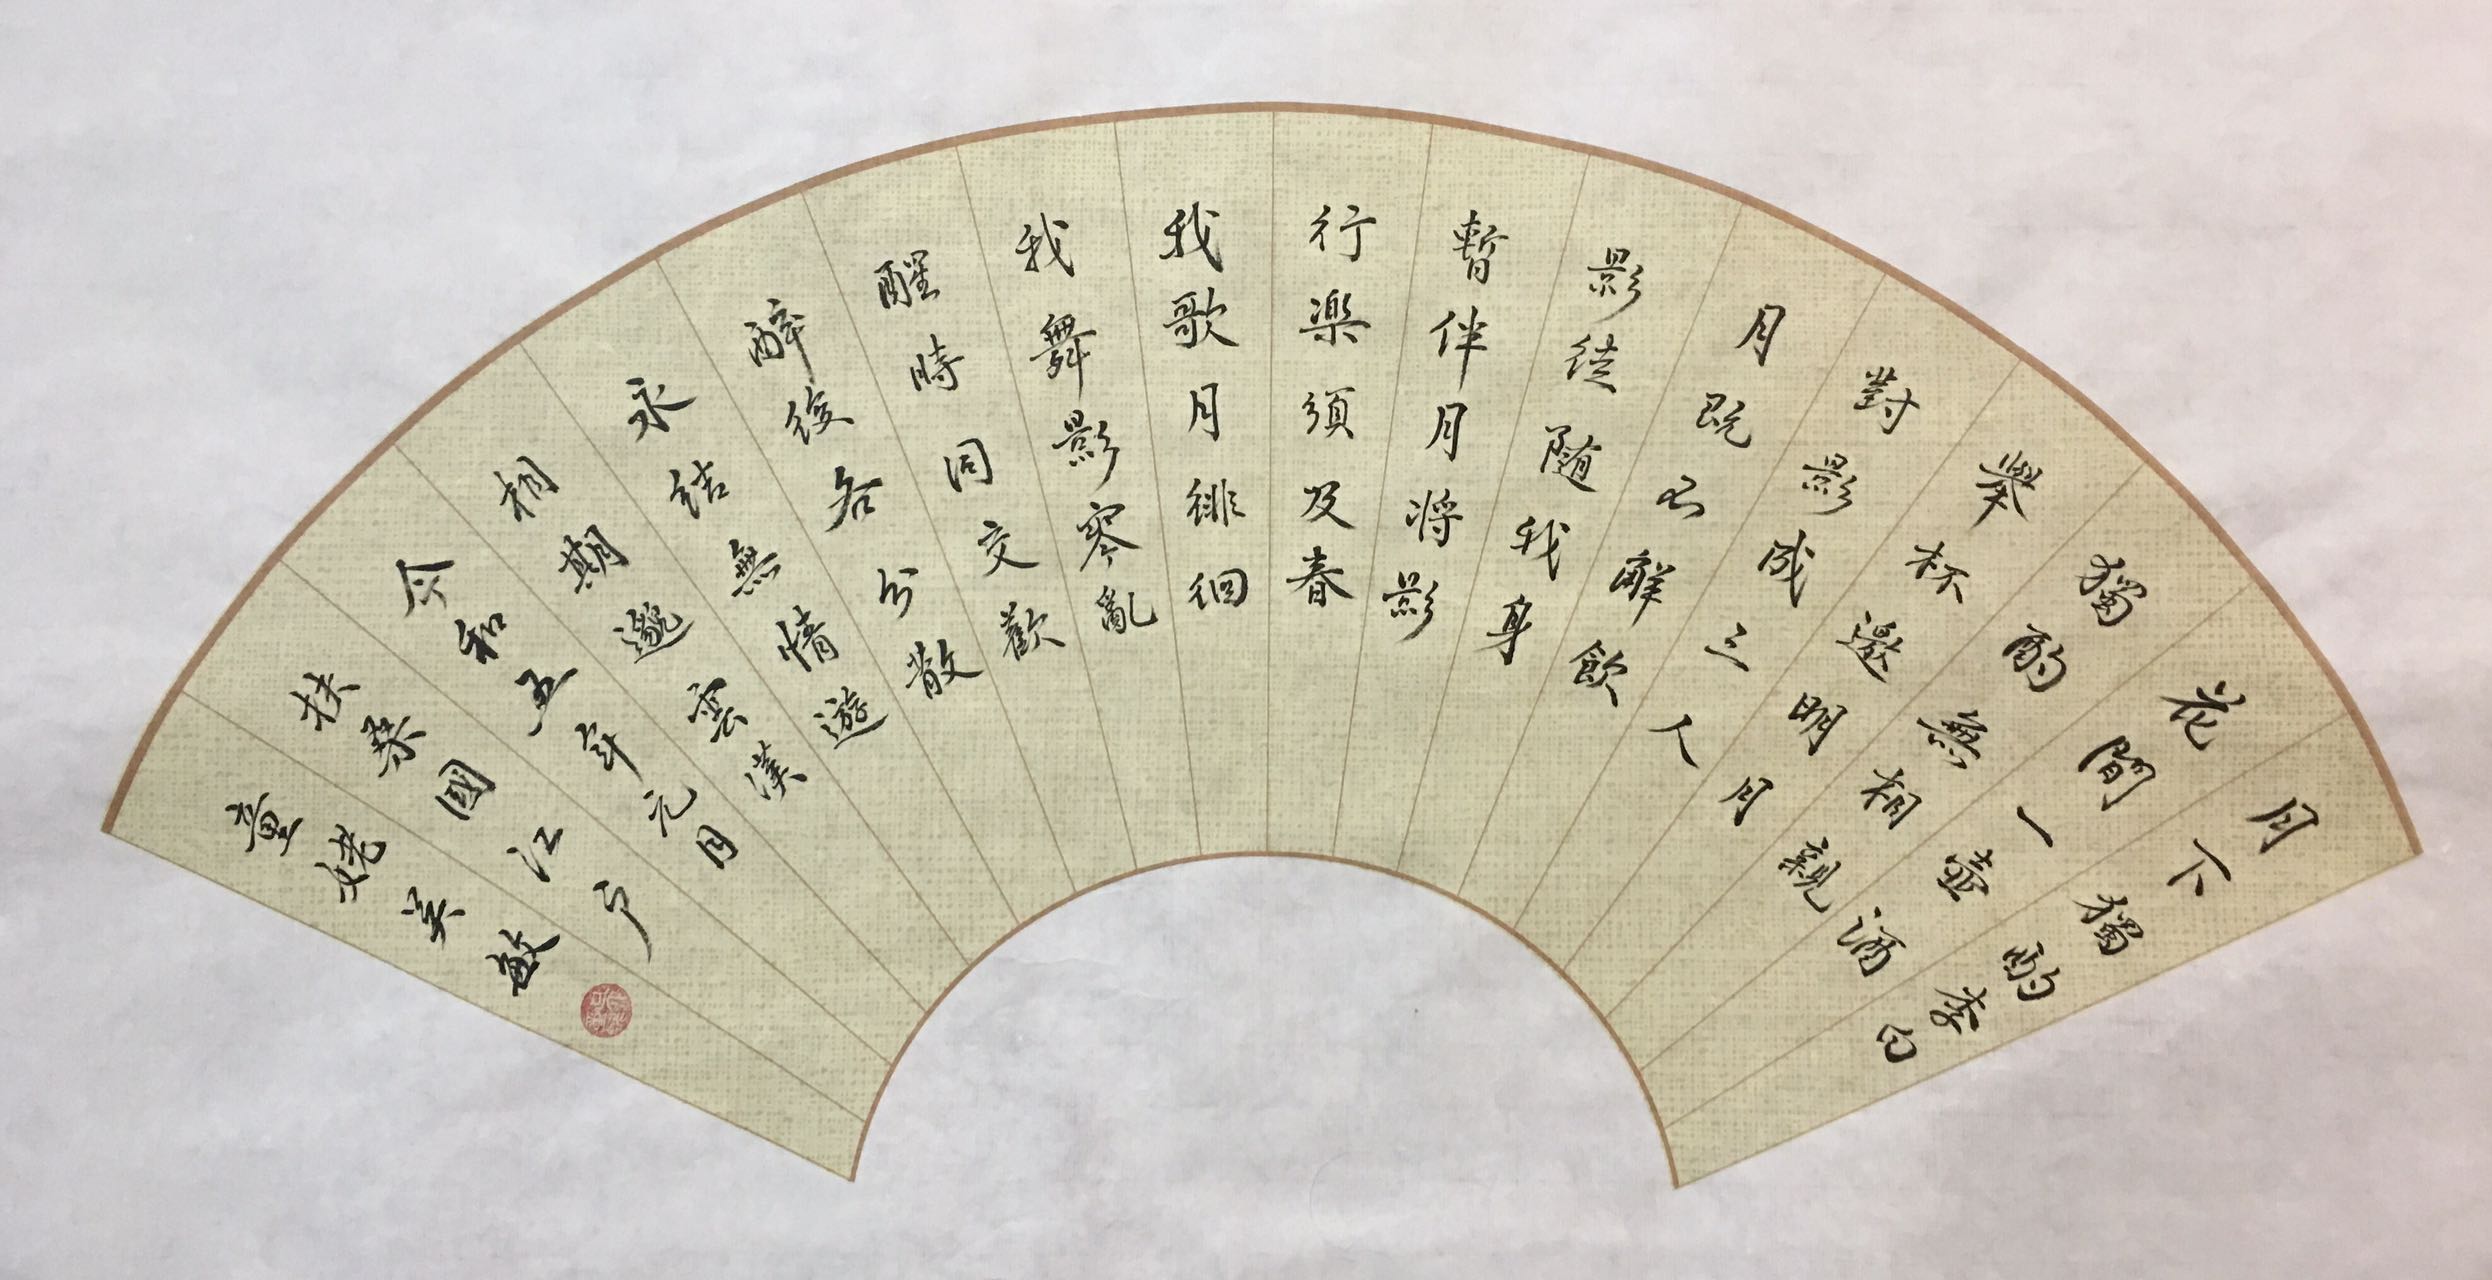 月下獨酌 李白
花間一壺酒
獨酌無相親
舉杯邀明月
對影成三人
月既不解飲
影徒随我身
暫伴月将影
行楽須及春
我歌月徘徊
我舞影零亂
醒時同交歡
醉後各分散
永結無情遊
相期邈雲漢
令和五年元月
扶桑國江戸
童姥吴敏